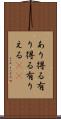 あり得る有
り得る有り
える